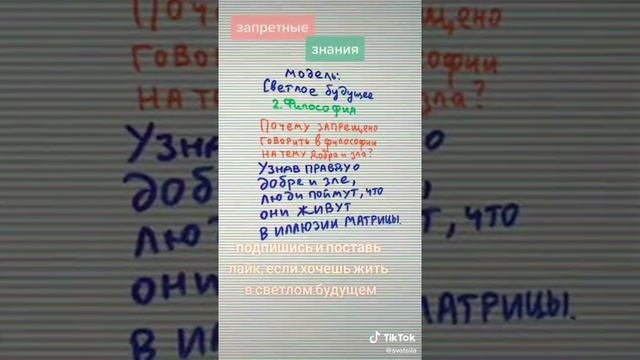 запретные
знания
модель:
Светлое будущее
2. Философия
Почему запрещено
говорить в философии
на тему добра и зла?
Узнав правду о
добре и зле,
люди поймут, что
они живут
в иллюзии матрицы.
подпишись и поставь
лайк, если хочешь жить
в светлом будущем
TikTok
@svetsila